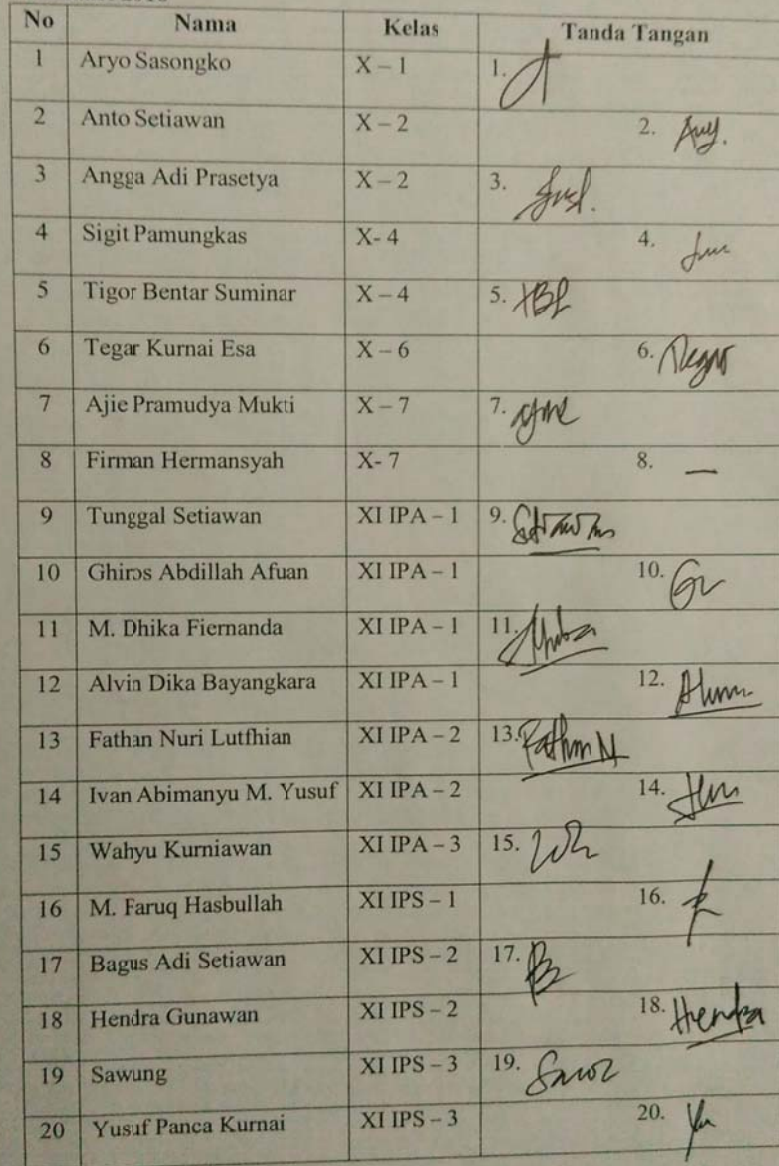 No Nama Kelas Tanda Tangan
1 Aryo Sasongko X – 1 1.
2 Anto Setiawan X – 2 2.
3 Angga Adi Prasetya X – 2 3.
4 Sigit Pamungkas X- 4 4.
5 Tigor Bentar Suminar X – 4 5. TBS
6 Tegar Kurnai Esa X – 6 6. Tegar
7 Ajie Pramudya Mukti X – 7 7.
8 Firman Hermansyah X- 7 8. —
9 Tunggal Setiawan XI IPA – 1 9.
10 Ghiros Abdillah Afuan XI IPA – 1 10.
11 M. Dhika Fiernanda XI IPA – 1 11.
12 Alvin Dika Bayangkara XI IPA – 1 12.
13 Fathan Nuri Lutfhian XI IPA – 2 13. Fathan N
14 Ivan Abimanyu M. Yusuf XI IPA – 2 14.
15 Wahyu Kurniawan XI IPA – 3 15.
16 M. Faruq Hasbullah XI IPS – 1 16.
17 Bagus Adi Setiawan XI IPS – 2 17.
18 Hendra Gunawan XI IPS – 2 18. Hendra
19 Sawung XI IPS – 3 19.
20 Yusuf Panca Kurnai XI IPS – 3 20.